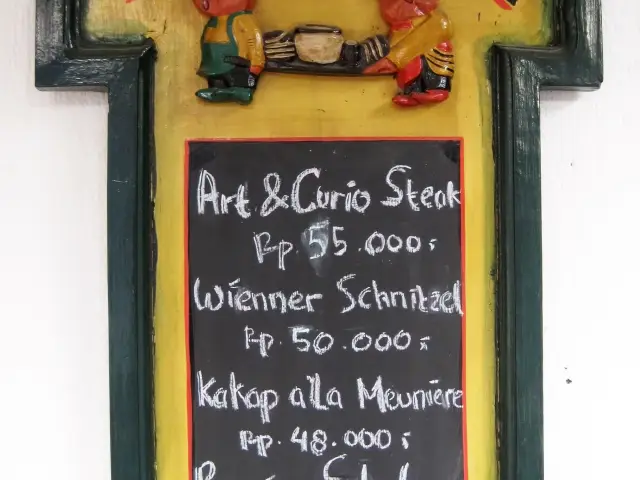 Art & Curio Steak
Rp. 55.000,-
Wienner Schnitzel
Rp. 50.000,-
Kakap a'la Meuniere
Rp. 48.000,-